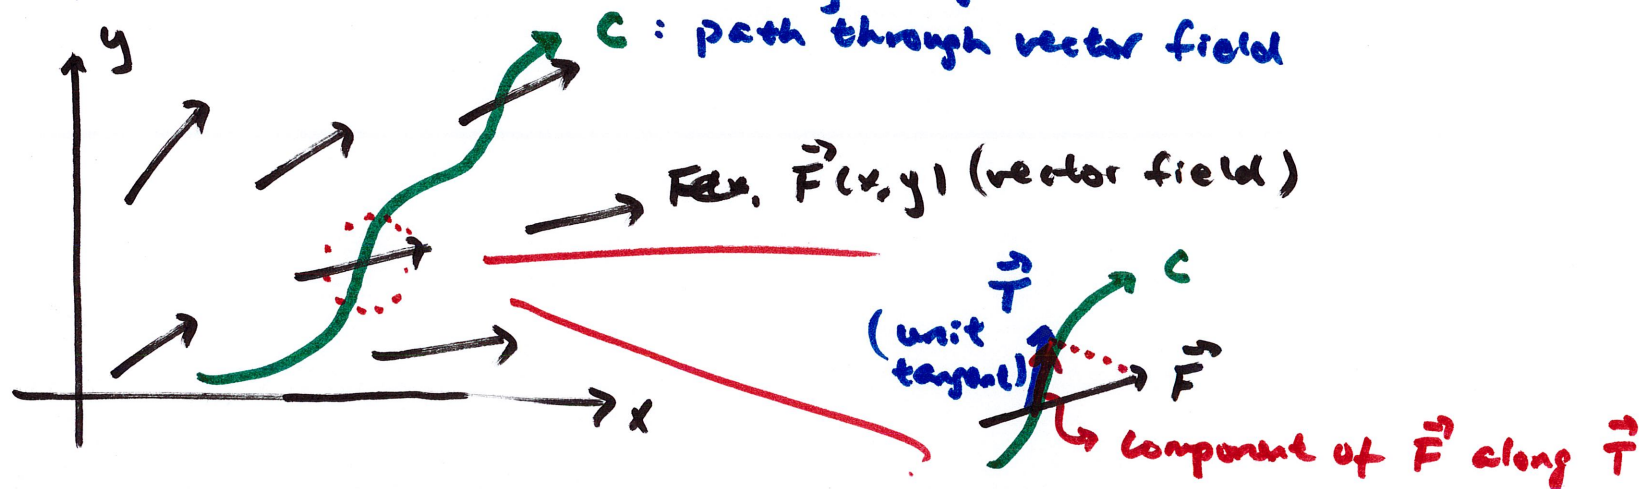 y
C : path through vector field
F⃗(x,y) (vector field)
T⃗
C
(unit
tangent)
F⃗
x
component of F⃗ along T⃗